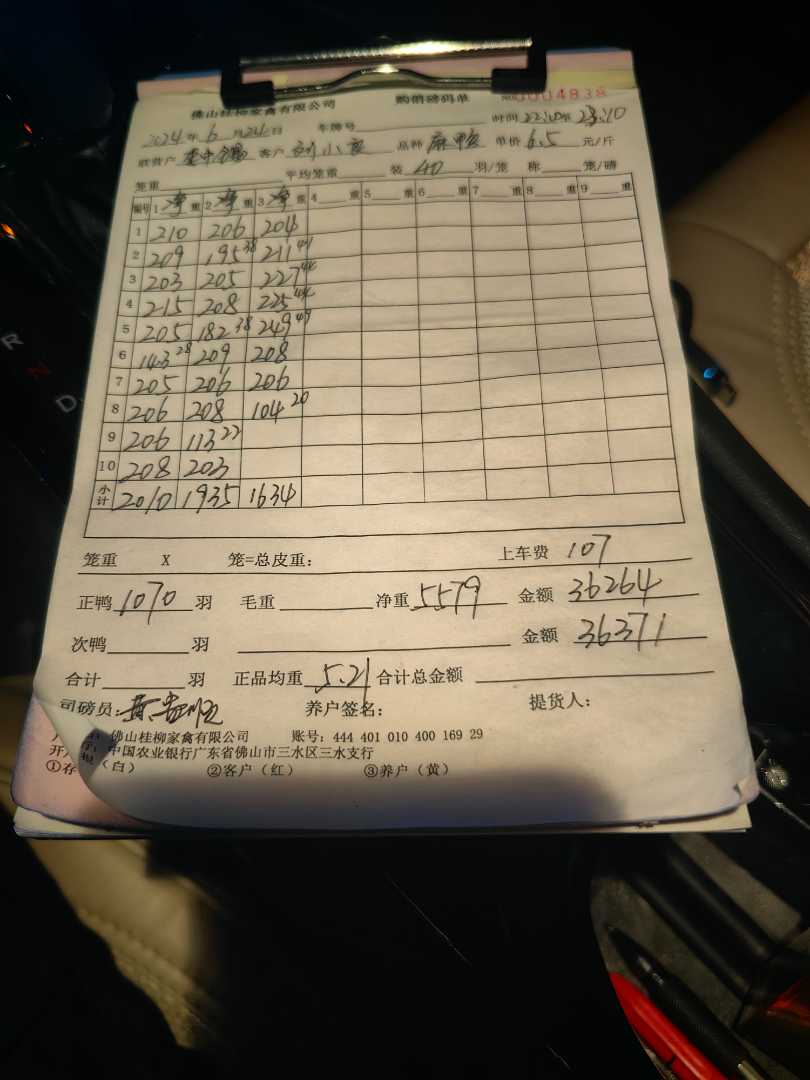 佛山桂柳家禽有限公司 购销磅码单 0004838
2024年6月24日 车牌号 时间22:10 23:10
客户 刘小 品种 麻鸭 单价 6.5 元/斤
笼重 平均笼重 装 40 羽/笼 称 笼/磅
编号 1 净 重 2 净 重 3 净 重 4 重 5 重 6 重 7 重 8 重 9 重
1 210 206 204
2 209 195 38 211 41
3 203 205 227 44
4 215 208 225 44
5 205 182 38 249 49
6 143 28 209 208
7 205 206 206
8 206 208 104 20
9 206 113 22
10 208 203
小计 2010 1935 1634
笼重 X 笼=总皮重: 上车费 107
正鸭 1070 羽 毛重 净重 5579 金额 36264
次鸭 羽 金额 36371
合计 羽 正品均重 5.21 合计总金额
司磅员: 养户签名: 提货人:
佛山桂柳家禽有限公司 账号: 444 401 010 400 169 29
开 中国农业银行广东省佛山市三水区三水支行
①存 (白) ②客户(红) ③养户(黄)
R
N
D